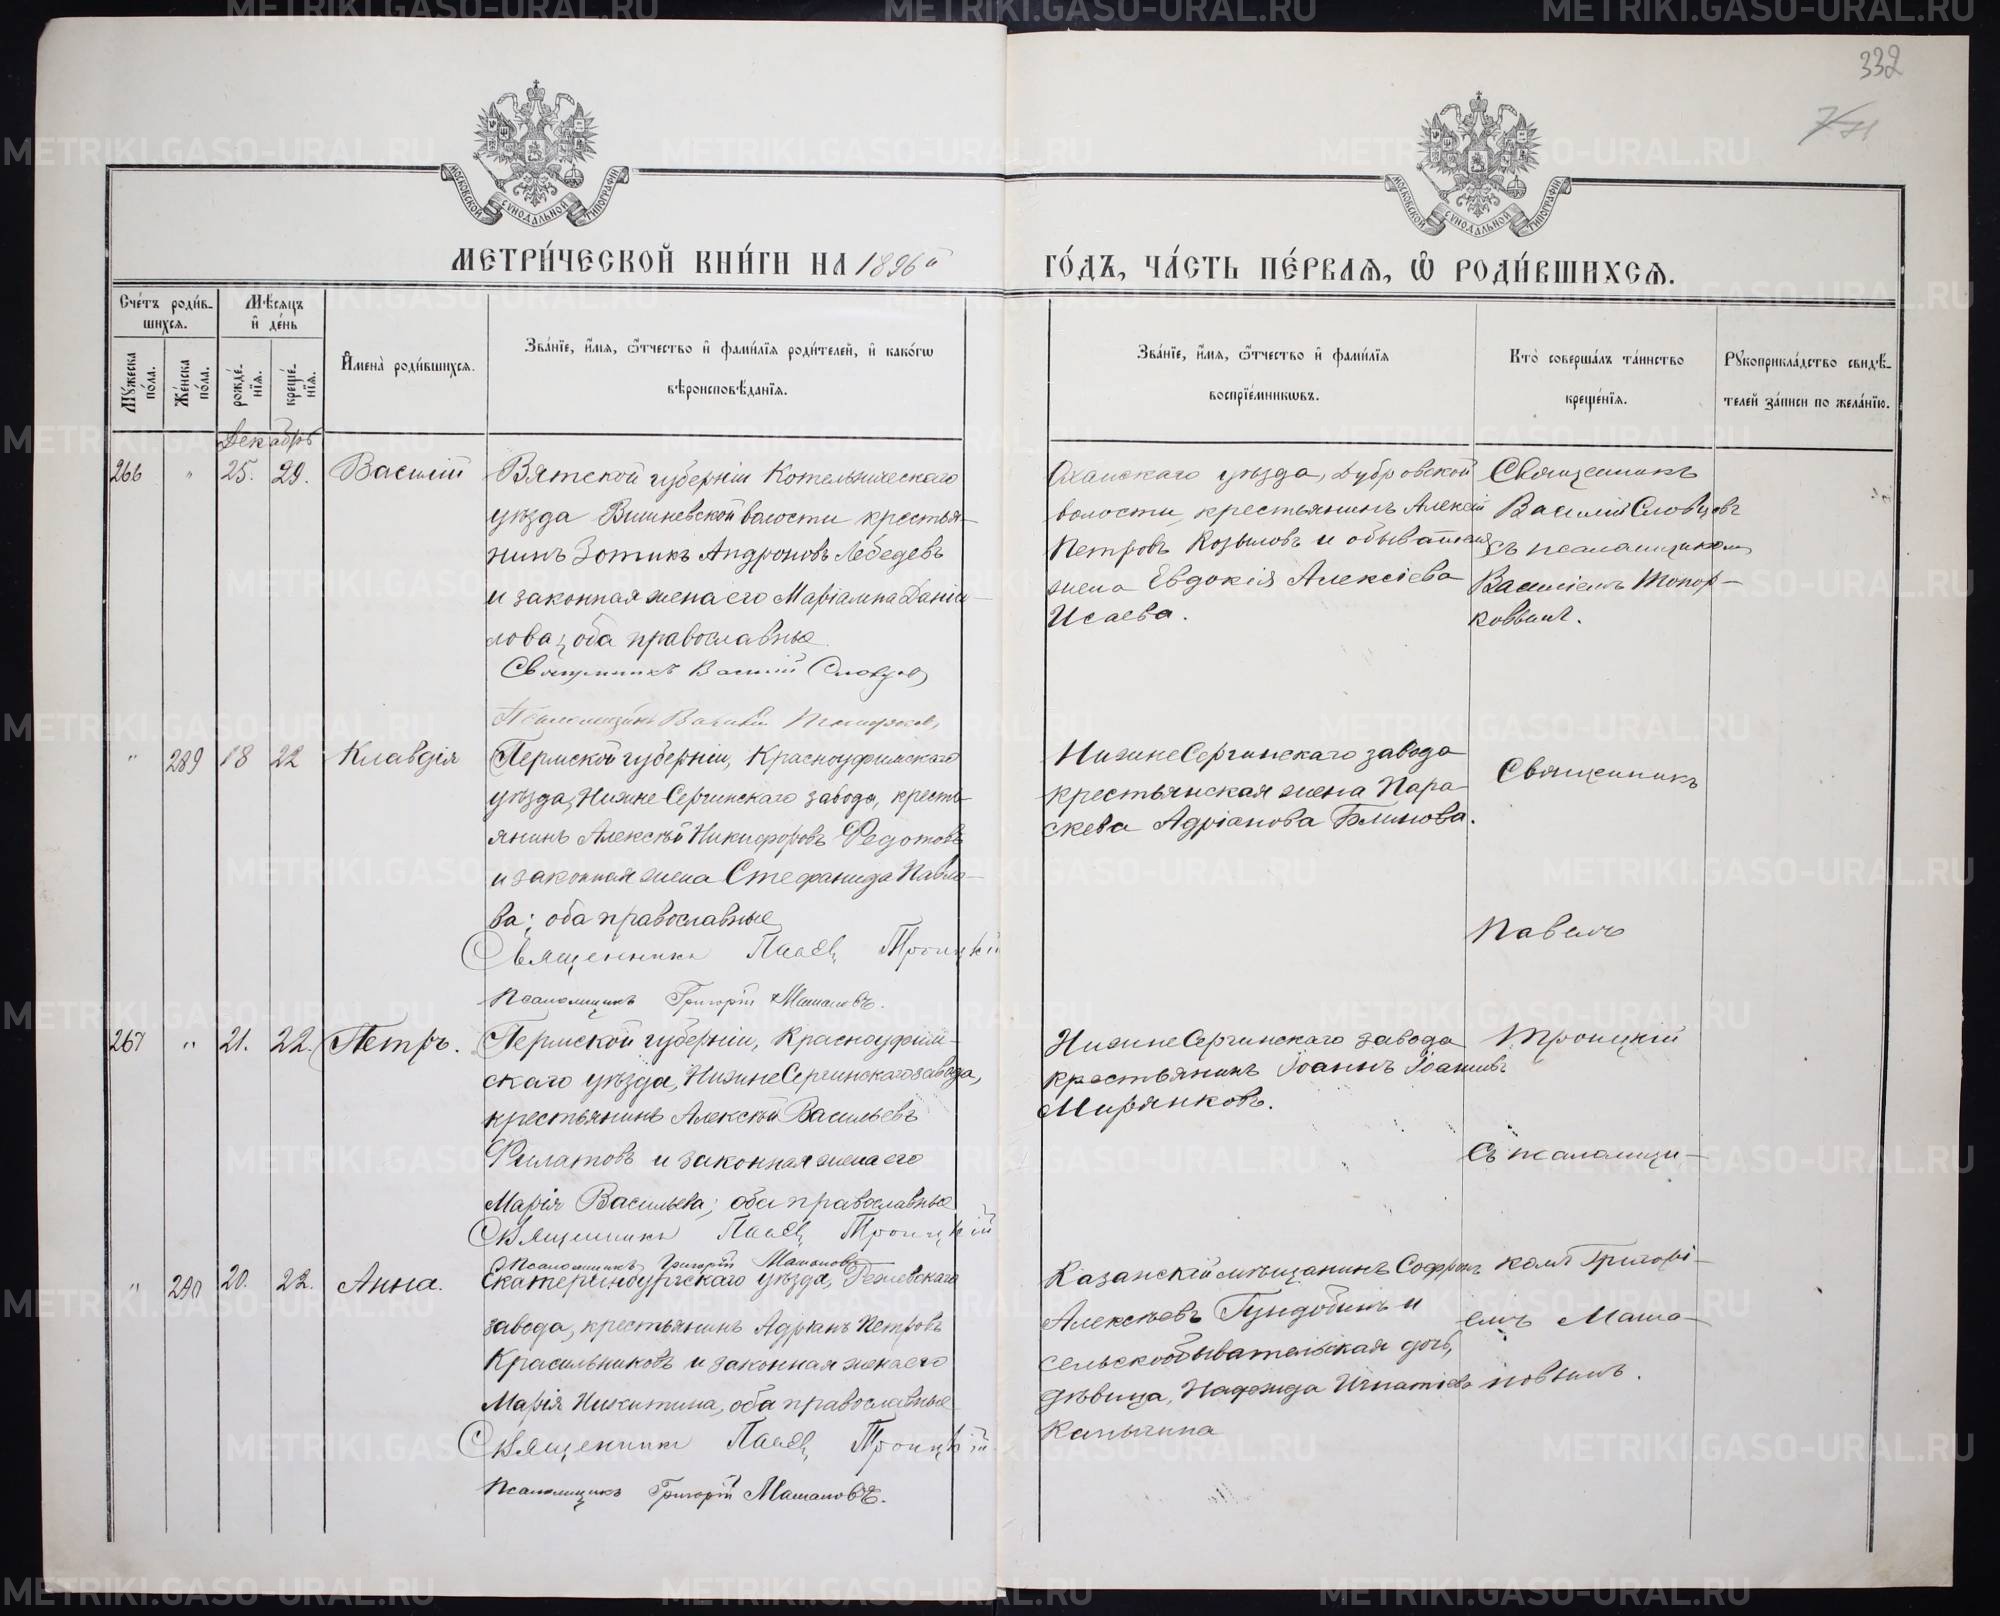 332
МЕТРИ́ЧЕСКОЙ КНИ́ГИ НА 1896й ГО́ДЪ, ЧА́СТЬ ПЕ́РВАЯ, Ѡ҆ РОДИ́ВШИХСЯ.
МОСКОВСКОЙ СУНОДАЛЬНОЙ ТИПОГРАФІИ
МОСКОВСКОЙ СУНОДАЛЬНОЙ ТИПОГРАФІИ
Сче́тъ роди́в-
шихся.
Мѣ́сяцъ
и҆ де́нь
Мꙋ́жеска по́ла.
Же́нска по́ла.
рожде́нїя.
креще́нїя.
И҆мена̀ роди́вшихся.
Зва́нїе, и҆́мя, ѻ҆́тчество и҆ фами́лїя роди́телей, и҆ како́гѡ
вѣроисповѣ́данїя.
Зва́нїе, и҆́мя, ѻ҆́тчество и҆ фами́лїя
воспрїе́мникѡвъ.
Кто̀ соверша́лъ та́инство
креще́нїя.
Рꙋкоприкла́дство свидѣ́-
телей за́писи по жела́нїю.
Декабрь
266 " 25. 29. Василій
Вятской губерніи Котельническаго
уѣзда Вишневской волости крестья-
нинъ Зотикъ Андроновъ Лебедевъ
и законная жена его Маріамна Даніи-
лова; оба православные
Священникъ Василій Словцов
Псаломщикъ Василій
Оханскаго уѣзда, Дубровской
волости, крестьянинъ Алексій
Петровъ Козыловъ и обывательск
жена Евдокія Алексіева
Исаева.
Священникъ
Василій Словцовъ
съ псаломщикомъ
Василіемъ Топор-
ковымъ.
" 289 18 22 Клавдія
Пермской губерніи, Красноуфимскаго
уѣзда, Нижне Сергинскаго завода, кресть-
янинъ Алексѣй Никифоровъ Федотовъ
и законная жена Стефанида Павло-
ва; оба православные
Священникъ Павел Троицкій
Псаломщикъ Григорій Машановъ.
НижнеСергинскаго завода
крестьянская жена Пара-
скева Адріанова Блинова.
Священникъ
Павелъ
267 " 21. 22. Петръ.
Пермской губерніи, Красноуфим-
скаго уѣзда, НижнеСергинскаго завода,
крестьянинъ Алексѣй Васильевъ
Филатовъ и законная жена его
Марія Васильева; оба православные
Священникъ Павел Троицкій
Псаломщикъ Григорій Машановъ
НижнеСергинскаго завода
крестьянинъ Іоаннъ Іоанновъ
Мирянковъ.
Троицкій
съ псаломщи-
" 290 20. 22. Анна.
Екатеринбургскаго уѣзда, Режевскаго
завода, крестьянинъ Адріанъ Петровъ
Красильниковъ и законная жена его
Марія Никитина, оба православные
Священникъ Павел Троицкій
Псаломщикъ Григорій Машановъ.
Казанскій мѣщанинъ Софронъ
Алексѣевъ Гундобинъ и
сельскообывательская дочь,
дѣвица, Надежда Игнатіева
Капычина
комъ Григорі-
емъ Маша-
новымъ.
METRIKI.GASO-URAL.RU